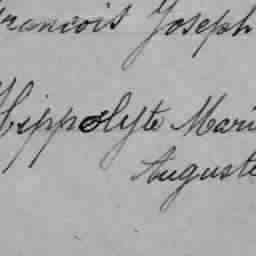 François Joseph
Hippolyte Mari
Auguste